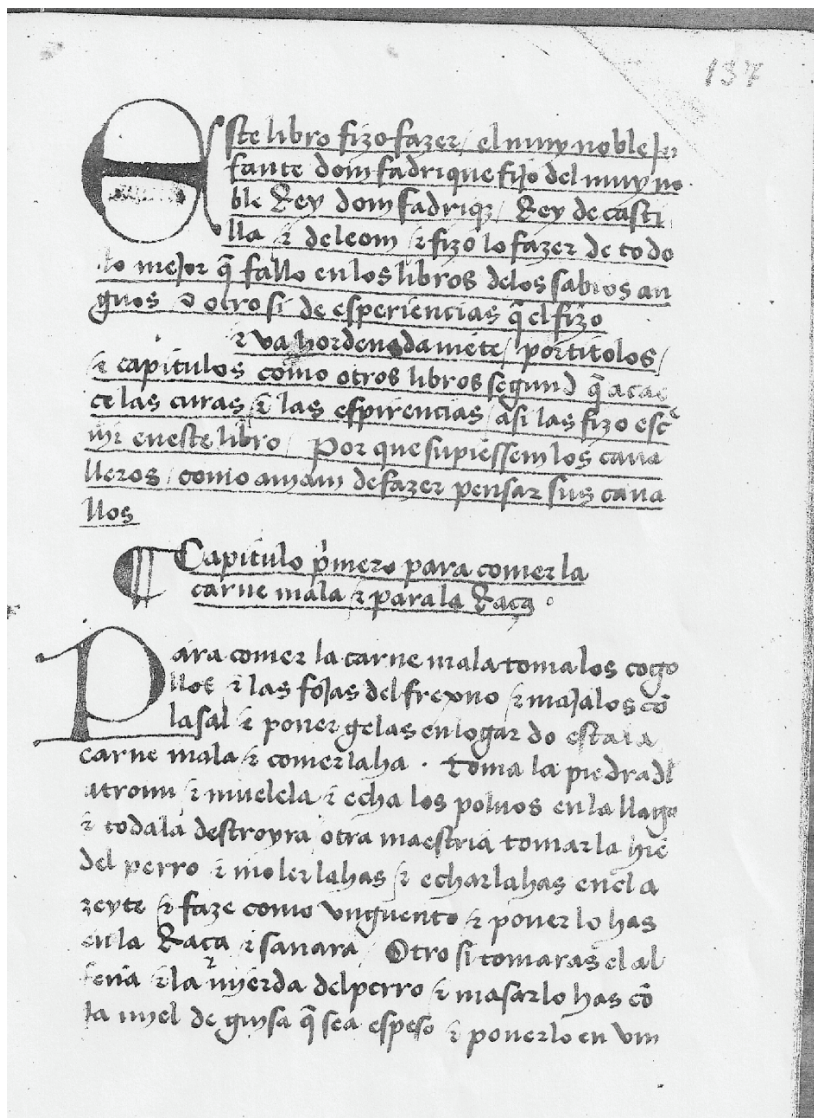 137
Este libro fizo fazer / el muy noble Jn
fante dom fadrique fijo del muy no
ble Rey dom fadriq̃ / Rey de casti
lla & de leom / & fizo lo fazer de todo
lo mejor q̃ fallo en los libros delos sabios an
guos & otro si de esperiencias q̃ el fizo
& va hordenadamẽte / por titolos /
& capitulos como otros libros segund q̃ acae
ce las curas & las espirencias / asi las fizo esc̃
uir en este libro / Por que supiessem los caua
lleros / como aujam de fazer pensar sus caua
llos
¶ Capitulo p̃mero para comer la
carne mala & para la Raca
Para comer la carne mala toma los cogo
llos & las fojas del frexno & majalos cõ
la sal & poner gelas en logar do esta la
carne mala & comer la ha . Toma la piedra dl
& muelela & echa los poluos en la llaga
& toda la destroyra otra maestria tomar la hie
del perro & moler la has & echar la has en el a
zeyte & faze como vnguento & poner lo has
en la Raca & sanara / Otro si tomaras el al
feña & la mierda del perro & masar lo has cõ
la myel de guisa q̃ sea espeso & poner lo en vn